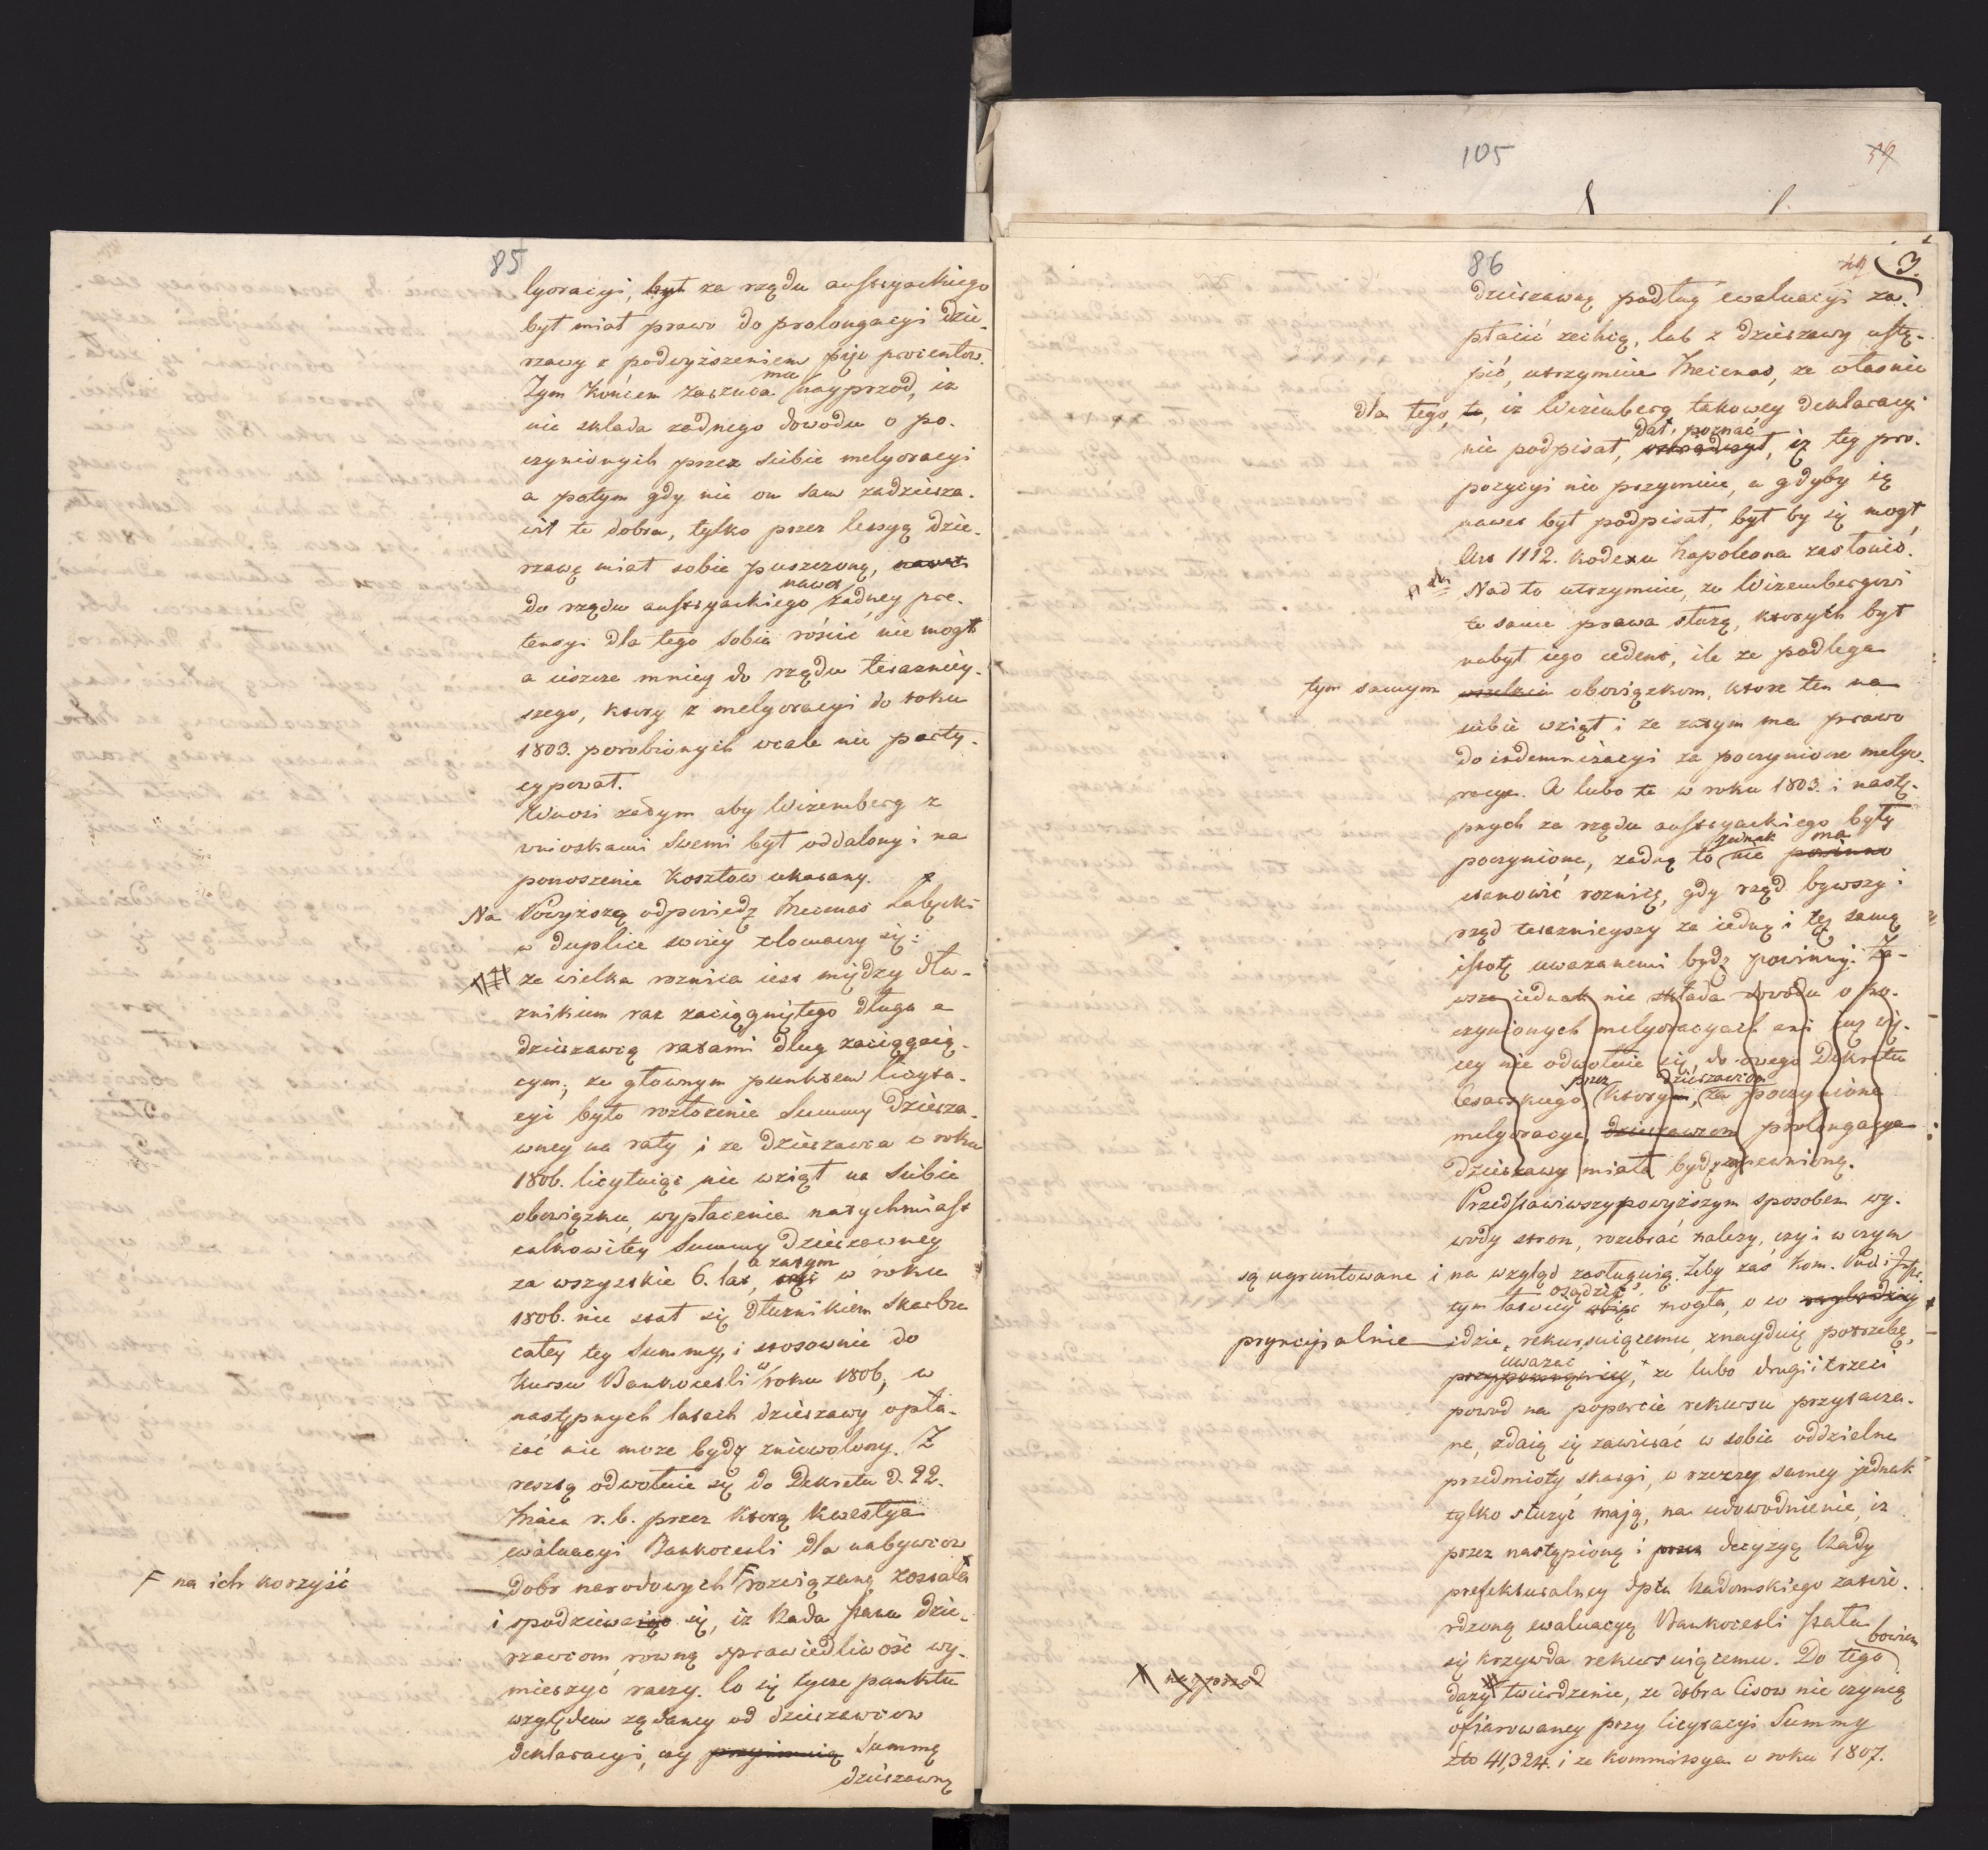 85
lyoracyi, był za rządu austryackiego
był miał prawo do prolongacyi dzie-
rzawy z podwyższeniem pięć procentow.
Tym końcem zarzuca mu nayprzod, iż
nie składa żadnego dowodu o po-
czynionych przez siebie melyoracyi
a potym gdy nie on sam zadzierza-
wił te dobra, tylko przez cessyą dzie-
rzawę miał sobie puszczoną, nawet
do rządu austryackiego nawet żadney pre-
tensyi dla tego sobie rościć nie mogł
a ieszcze mniey do rządu teraźniey-
szego, ktory z melyoracyi do roku
1803. porobionych wcale nie party-
cypował.
Wnosi zatym aby Wizemberg z
wnioskami swemi był oddalony i na
ponoszenie kosztow ukarany.
Na Powyższą odpowiedź Mecenas Łabęcki
w duplice swoiey tłomaczy się:
że wielka roznica iest między dłu-
żnikiem raz zaciągniętego długu a
dzierzawcą ratami dług zaciągaią-
cym; że głownym punktem licyta-
cyi było rozłożenie Summy dzierza-
wney na raty i że dzierzawca w roku
1806. licytuiąc nie wziął na siebie
obowiązku wypłacenia natychmiast
całkowitey Summy dzierzawney
za wszystkie 6. lat, a zatym w roku
1806. nie stał się dłużnikiem skarbu
całey tey Summy, i stosownie do
kursu Bankocetli w roku 1806, w
następnych latach dzierzawy opła-
cać nie może bydź zniewolony. Z
resztą odwołuie się do Dekretu d. 22.
Maia r. b. przez ktorą kwestya
ewaluacyi Bankocetli dla nabywcow
dobr narodowych F rozwiązaną została
F na ich korzyść
i spodziewa się, iż Rada Stanu dzie-
rzawcom rowną sprawiedliwość wy-
mierzyć raczy. Co się tycze punktu
względem żądaney od dzierzawcow
deklaracyi, czy przyimuią Summę
dzierzawną
105
86
3.
dzierzawną podług ewaluacyi za-
płacić zechcą, lub z dzierzawy ustą-
pić, utrzymuie Mecenas, że własnie
dla tego, te, iż Wizemberg takowey deklaracyi
nie podpisał, dał poznać, iż tey pro-
pozycyi nie przyimuie, a gdyby ią
nawet był podpisał, był by się mogł
Art 1112. Kodexu Napoleona zasłonić.
Nad to utrzymuie, że Wizembergowi
te same prawa służą, ktorych był
nabył iego cedent, ile że podlega
tym samym wszelkim obowiązkom, ktore ten na
siebie wziął i że zatym ma prawo
do indemnizacyi za poczynione melyo-
racye. A lubo te w roku 1803. i nastę-
pnych za rządu austryackiego były
poczynione, żadną to jednak nie ma powinno
stanowić roznicę, gdy rząd bywszy i
rząd teraznieyszy za iedną i tęż samą
istotę uważanemi bydź powinny. Za-
wsze iednak nie składa dowodu o po-
czynionych melyoracyach ani też wię-
cey nie odwołuie się do owego Dekretu
Cesarskiego, przez ktory, dzierzawcom za poczynione
melyoracye, dzierzawcom prolongacya
dzierzawy miała bydź zapewnioną.
Przedstawiwszy powyższym sposobem wy-
wody stron, rozebrać należy, czy i w czym
są ugruntowane i na wzgląd zasługuią. Żeby zaś Kom. Pod i Inst.
tym łatwiey osądzić mogła, o co
pryncypalnie idzie, rekursuiącemu, znayduię potrzebę,
uważać, że lubo drugi i trzeci
powod na poparcie rekursu przytacza-
ne, zdaią się zawierać w sobie oddzielne
przedmioty skargi, w rzeczy samey jednak
tylko służyć mają, na udowodnienie, iż
przez nastąpioną i przez decyzyą Rady
prefekturalney Dptu Radomskiego zatwie-
rdzoną ewaluacyą Bankocetli stała
się krzywda rekursuiącemu. Do tego bowiem
dąży twierdzenie, że dobra Cisow nie czynią
nayprzod
ofiarowaney przy licytacyi Summy
Złto 41,324. i że kommissya w roku 1807.